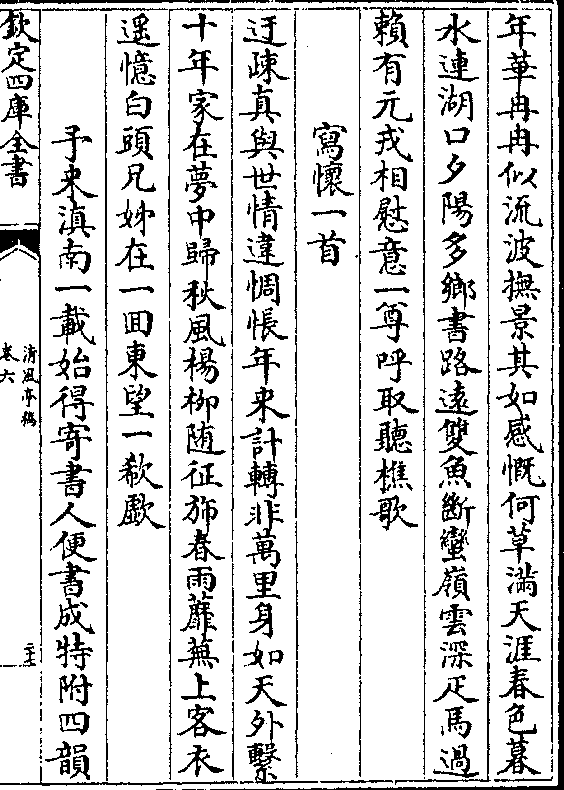 年華冉冉似流波撫景其如感慨何草滿天涯春色暮
水連湖口夕陽多鄉書路遠雙魚斷蠻嶺雲深疋馬過
賴有元戎相慰意一尊呼取聽樵歌
寫懷一首
迂疎真與世情違惆悵年来計轉非萬里身如天外繫
十年家在夢中歸秋風楊栁随征斾春雨蘼蕪上客衣
遥憶白頭兄姊在一回東望一欷歔
予来滇南一載始得寄書人便書成特附四韻
欽定四庫全書
清風亭稿
卷六
二十三